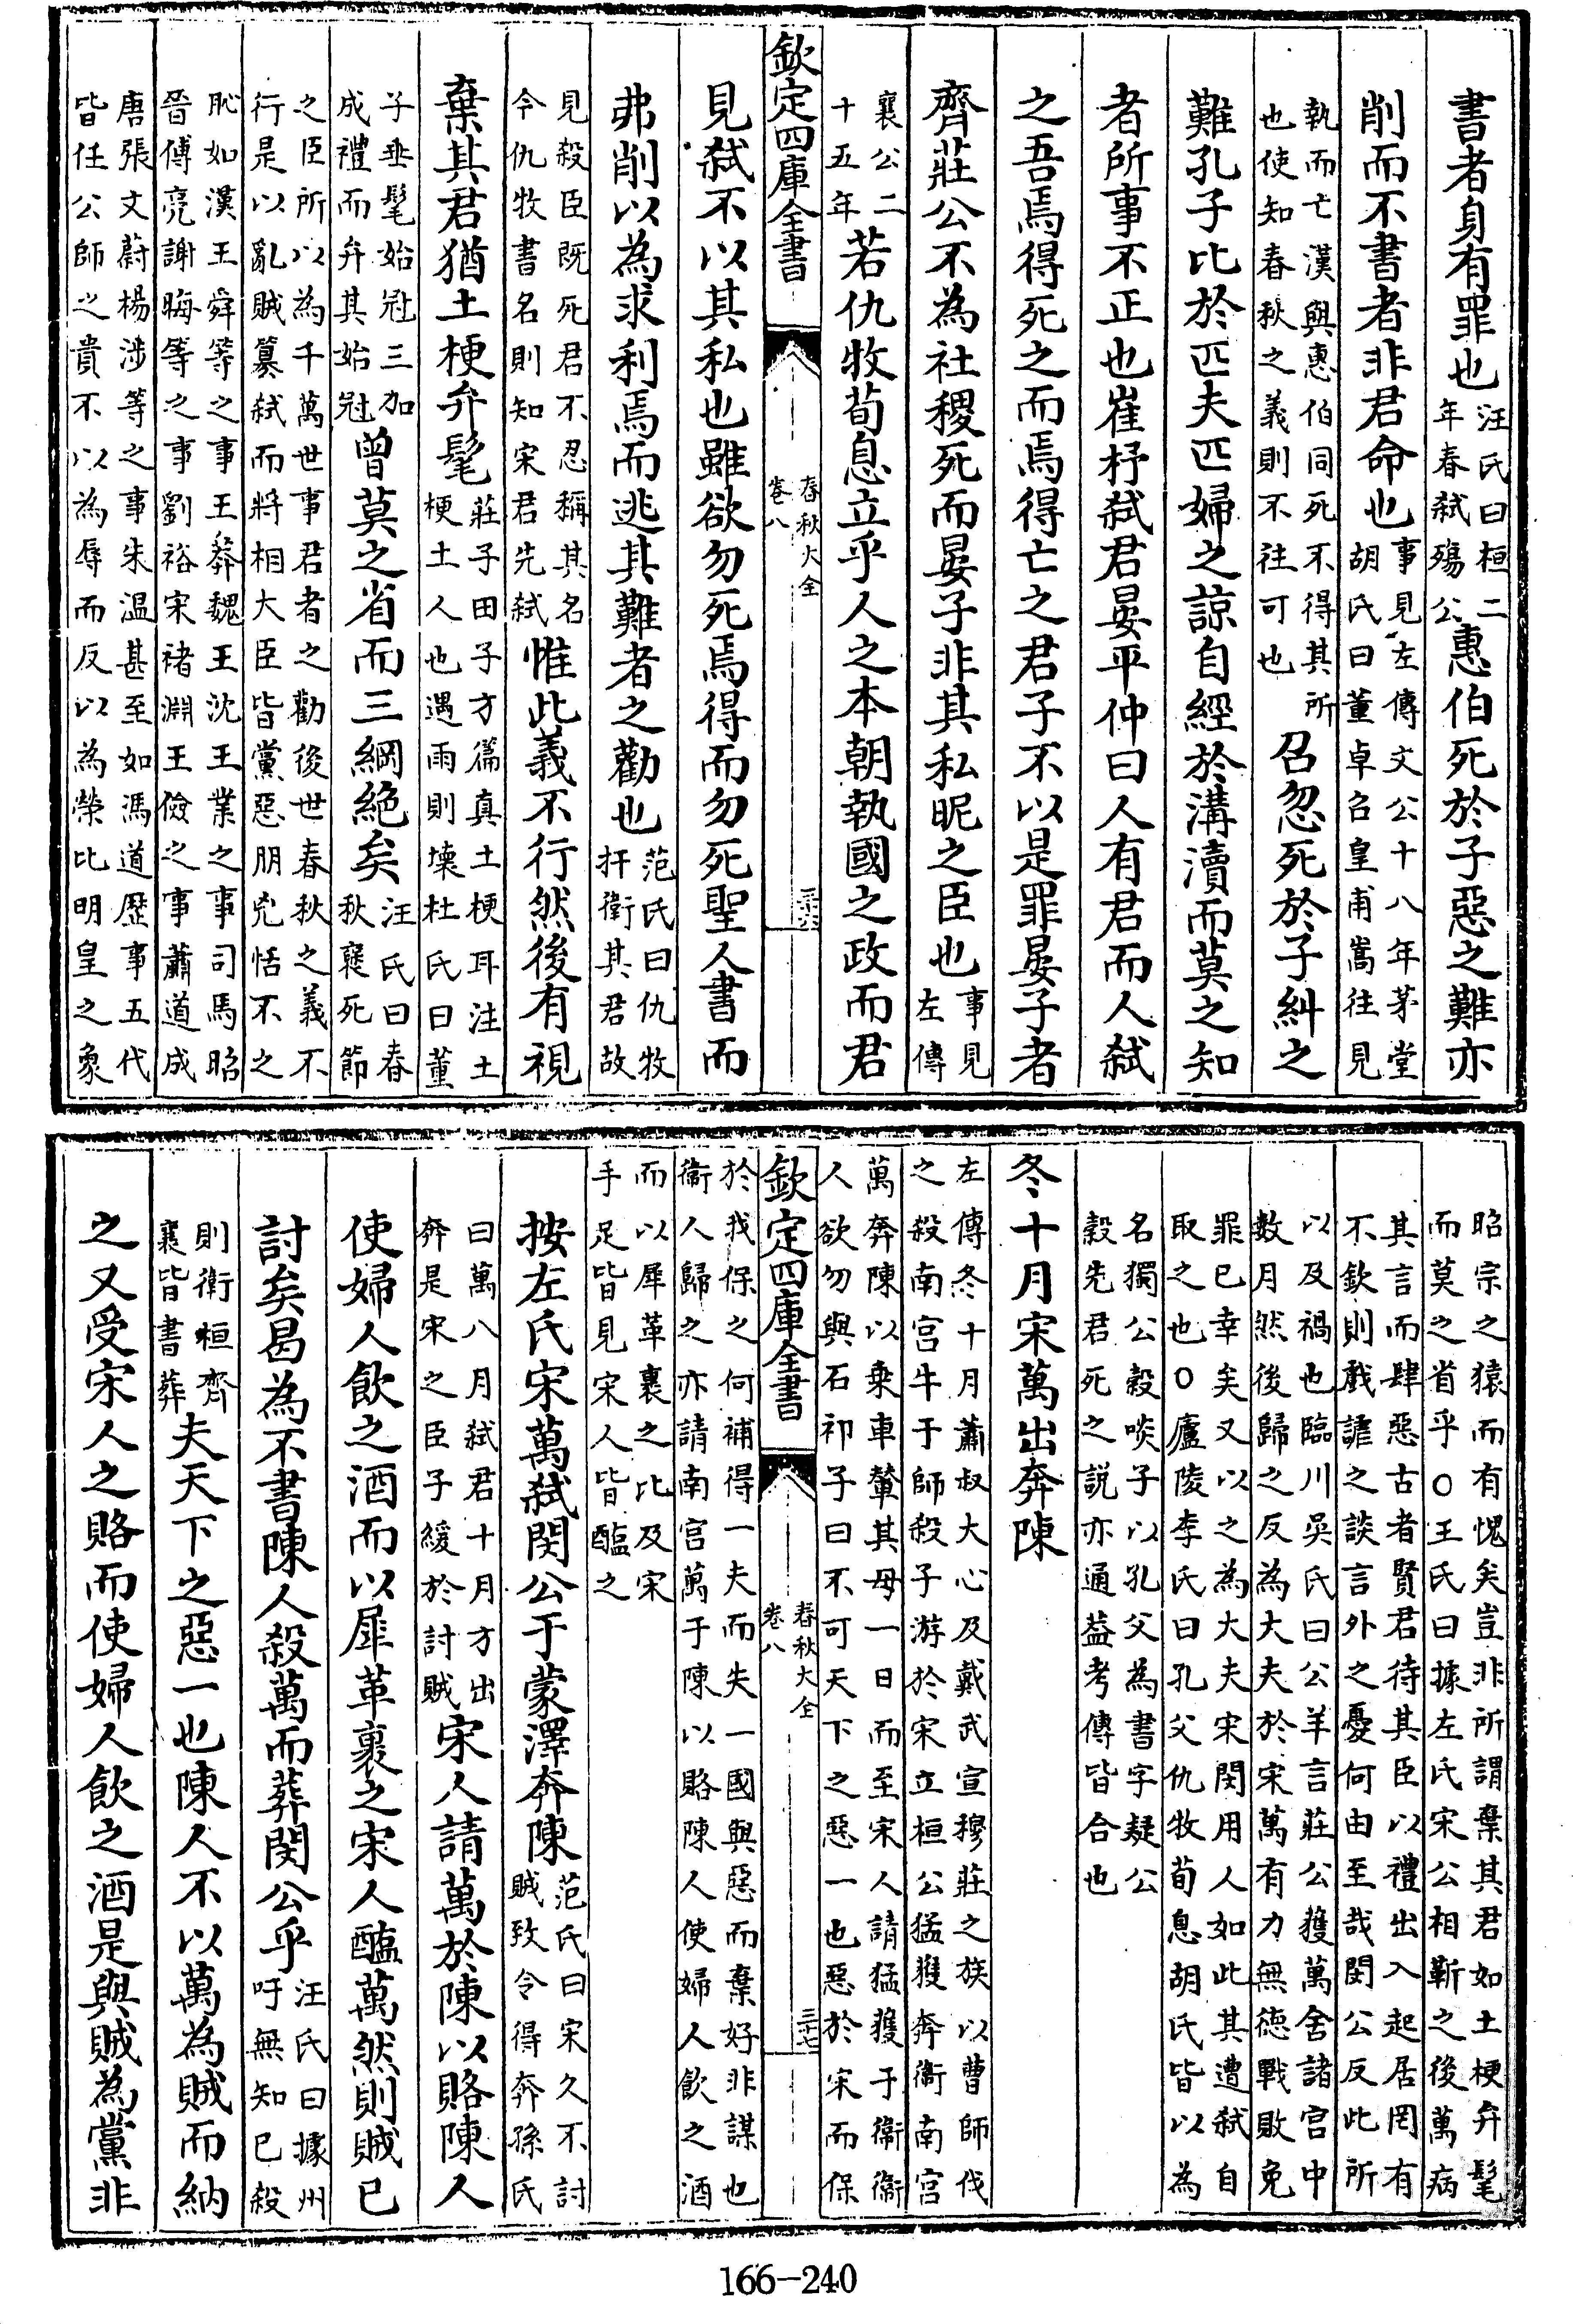 書者身有罪也汪氏曰桓二年春弑殤公惠伯死於子惡之難亦
削而不書者非君命也事見左傳文公十八年茅堂胡氏曰董卓召皇甫嵩往見
執而亡漢與惠伯同死不得其所也使知春秋之義則不往可也召忽死於子糾之
難孔子比於匹夫匹婦之諒自經於溝瀆而莫之知
者所事不正也崔杼弑君晏平仲曰人有君而人弑
之吾焉得死之而焉得亡之君子不以是罪晏子者
齊莊公不為社稷死而晏子非其私昵之臣也事見左傳
襄公二十五年若仇牧荀息立乎人之本朝執國之政而君
欽定四庫全書
春秋大全
卷八
三十六
見弑不以其私也雖欲勿死焉得而勿死聖人書而
弗削以為求利焉而逃其難者之勸也范氏曰仇牧扞衛其君故
見殺臣既死君不忍稱其名今仇牧書名則知宋君先弑惟此義不行然後有視
棄其君猶土梗弁髦莊子田子方篇真土梗耳注土梗土人也遇雨則壞杜氏曰董
子垂髦始冠三加成禮而弁其始冠曾莫之省而三綱絶矣汪氏曰春秋襄死節
之臣所以為千萬世事君者之勸後世春秋之義不行是以亂賊簒弑而將相大臣皆黨惡朋兇恬不之
恥如漢王舜等之事王莽魏王沈王業之事司馬昭晉傅亮謝晦等之事劉裕宋褚淵王儉之事蕭道成
唐張文蔚楊涉等之事朱溫甚至如馮道歴事五代皆任公師之貴不以為辱而反以為榮比明皇之象
昭宗之猿而有愧矣豈非所謂棄其君如土梗弁髦而莫之省乎○王氏曰據左氏宋公相靳之後萬病
其言而肆惡古者賢君待其臣以禮出入起居罔有不欽則戲謔之談言外之憂何由至哉閔公反此所
以及禍也臨川吳氏曰公羊言莊公獲萬舍諸宫中數月然後歸之反為大夫於宋萬有力無德戰敗免
罪已幸矣又以之為大夫宋閔用人如此其遭弑自取之也○廬陵李氏曰孔父仇牧荀息胡氏皆以為
名獨公穀啖子以孔父為書字疑公穀先君死之說亦通益考傳皆合也
冬十月宋萬出奔陳
左傳冬十月蕭叔大心及戴武宣穆莊之族以曹師伐之殺南宫牛于師殺子游於宋立桓公猛獲奔衛南宫
萬奔陳以乗車輦其母一日而至宋人請猛獲于衛衛人欲勿與石祁子曰不可天下之惡一也惡於宋而保
欽定四庫全書
春秋大全
卷八
三十七
於我保之何補得一夫而失一國與惡而棄好非謀也衛人歸之亦請南宫萬于陳以賂陳人使婦人飲之酒
而以犀革裹之比及宋手足皆見宋人皆醢之
按左氏宋萬弑閔公于蒙澤奔陳范氏曰宋久不討賊致令得奔孫氏
曰萬八月弑君十月方出奔是宋之臣子緩於討賊宋人請萬於陳以賂陳人
使婦人飲之酒而以犀革裹之宋人醢萬然則賊已
討矣曷為不書陳人殺萬而葬閔公乎汪氏曰據州吁無知已殺
則衛桓齊襄皆書葬夫天下之惡一也陳人不以萬為賊而納
之又受宋人之賂而使婦人飲之酒是與賊為黨非
166-240